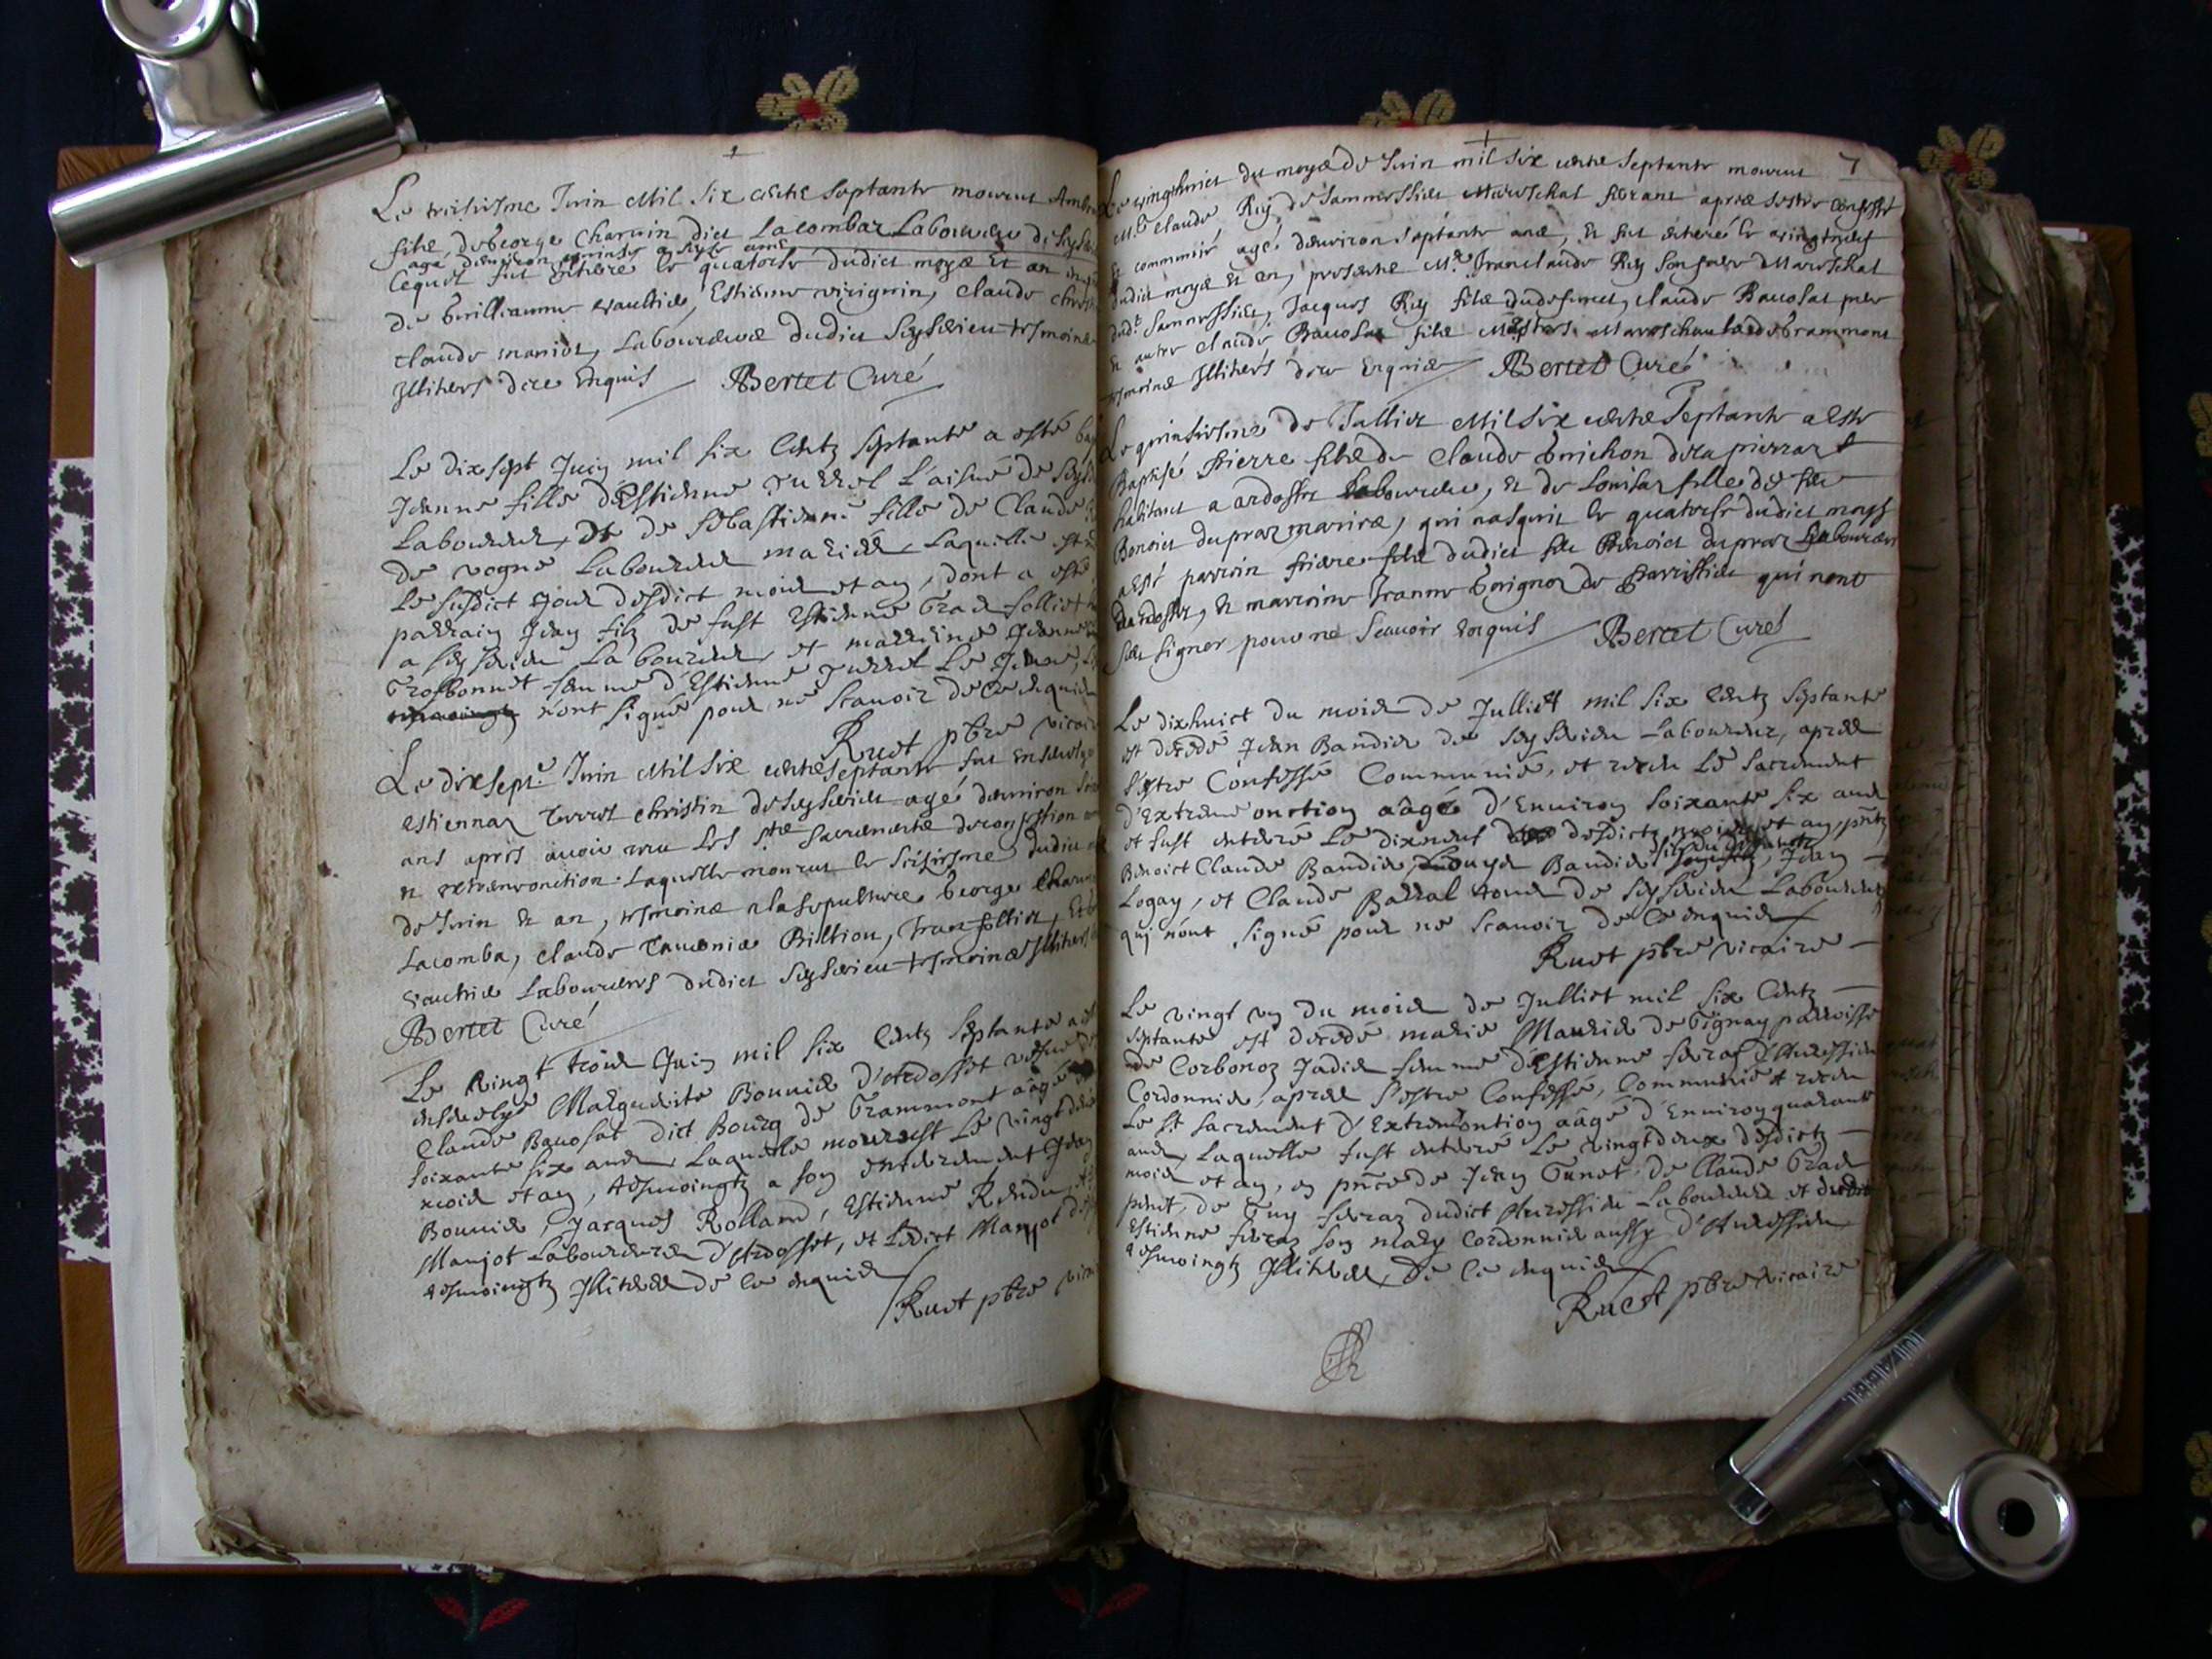 Le treisiesme Juin Mil Six cents Septante mourut
filz de George Charvin dict Lacombaz Laboureur de
agé d'environ
Lequel fut enterré le quatorse dudict moys et an
de Guilliaume vaultier, Estienne virignin, Claude
Claude maniot, Laboureurs dudict Seyserieu tesmoins
Illiters de ce Enquis Bertet Curé
Le dix sept Juin mil six Centz septante a esté
Jeanne fille d'Estienne Jurrel L'aisné de
Laboureur, et de Sebastienne fille de Claude
de vogne Laboureur mariés, Laquelle
Le susdict jour desdict mois et an, dont a esté
parrain Jean filz de fust Estienne
a Seyserieu Laboureur, et marreine Jeanne
Grosbonnet femme d'Estienne Jurrel Le Jeune,
n'ont signé pour ne scavoir de ce enquis
Ruet pbre vicaire
Le dix sept.e Juin Mil Six cents septante fut Ensevelye
Estiennaz christin de Seyserieu agé d'environ
ans aprés avoir receu les sts sacrements de confession
et extremeonction. Laquelle mourut le seisiesme dudict
de Juin et an, tesmoins a la sepulture George Charvin
Lacomba, Claude Billion, Jean folliet,
vaultier Laboureurs dudict Seyserieu tesmoins Illiters
Bertet Curé
Le vingt trois Juin mil six Centz septante a
ensevelye Marguerite Bonnier d'Ardosset vefve
Claude Bavosat dict Bourg de Grammont aâgé
soixante six ans, Laquelle mourust Le vingt deux
mois et an, tesmoingtz a son enterrement Jean
Bonnier, Jacques Rolland, Estienne
Manjot Laboureurs d'Ardosset, et Ledict Manjot
tesmoingtz Illiteres de ce enquis
Ruet pbre
7
Le vingthuict du moys de Juin mil six cents septante mourut
M.e Claude Rey de Sammeyssieu Mareschal ferrant aprés sestre confessé
et communié agé d'environ septante ans, et fut enterré le vingtneuf
dudict moys et an, presents M.e Jeanclaude Rey son frere Mareschal
dud.t Sammessieu, Jacques Rey filz dudefunct, Claude Bavosat pere
et autre Claude Bavosat filz Mestres Mareschaulx de Grammont
tesmoins Illiters de ce Enquis Bertet Curé
Le quinsiesme de Julliet Mil Six cents Septante a Esté
Baptisé Pierre filz de Claude Guichon de la pierraz
habitant a ardosset Laboureur, et de Louisaz fille de feu
Benoict dupraz mariés, qui nasquit le quatorse dudict moys
a Esté parrin Pierre filz dudict feu Benoict dupraz Laboureur
dardosset, et marrine Jeanne de Parrissieu qui n'ont
sceu signer pour ne Scavoir Enquis Bertet Curé
Le dixhuict du mois de Julliet mil six Centz septante
est decedé Jean Bandier de Seyserieu Laboureur, apres
s'estre Confessé Communié, et receu Le Sacrement
d'Extremeonction aâgé d'Environ soixante six ans
et fust enterré Le dixneuf desdictz mois et an, pntz
Benoict Claude Bandier, Bandier filz du deffunct, Jean
Logay, et Claude Barral tous de Seyserieu Laboureurs
qui n'ont signé pour ne scavoir de ce enquis
Ruet pbre vicaire
Le vingt un du mois de Julliet mil six Centz
septante est decedé marie Maurier de Gignay parroisse
de Corbonoz Jadis femme d'Estienne feraz d'Auressieu
Cordonnier, apres s'estre Confessé, Communié et receu
Le St Sacrement d'Extremeontion aâgé d'Environ quarante
ans, Laquelle fust enterré Le vingtdeux desdictz
mois et an, en pnce de Jean Gunet de Claude
de Guy feraz dudict Auressieu Laboureurs et dudict
Estienne feraz son mary Cordonnier aussy d'Auressieu
tesmoingtz Illiteres, de ce enquis
Ruet pbre vicaire